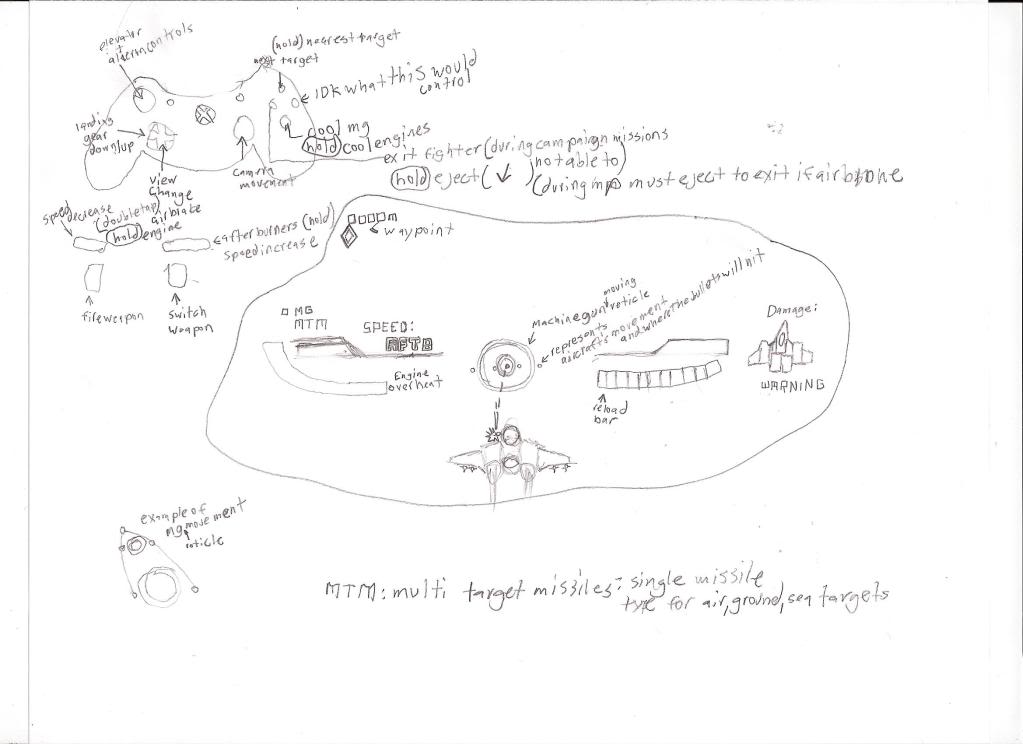 elevator
+
aileron controls
(hold) nearest target
next target
IDK what this would
control
landing
gear
down/up
cool mg
(hold) cool engines
exit fighter (during campaign missions
not able to)
(hold) eject (↓) (during mp must eject to exit if airborne
camera
movement
view
change
speed decrease
(double tap) airbrake
(hold) engine
afterburners (hold)
speed increase
m
waypoint
fire weapon
switch
weapon
MG
MTM
SPEED:
AFTB
Engine
overheat
moving
machine gun reticle
represents
aircraft's movement
and where the bullets will hit
Damage:
WARNING
reload
bar
example of
mg movement
reticle
MTM: multi target missiles: single missile
type for air, ground, sea targets